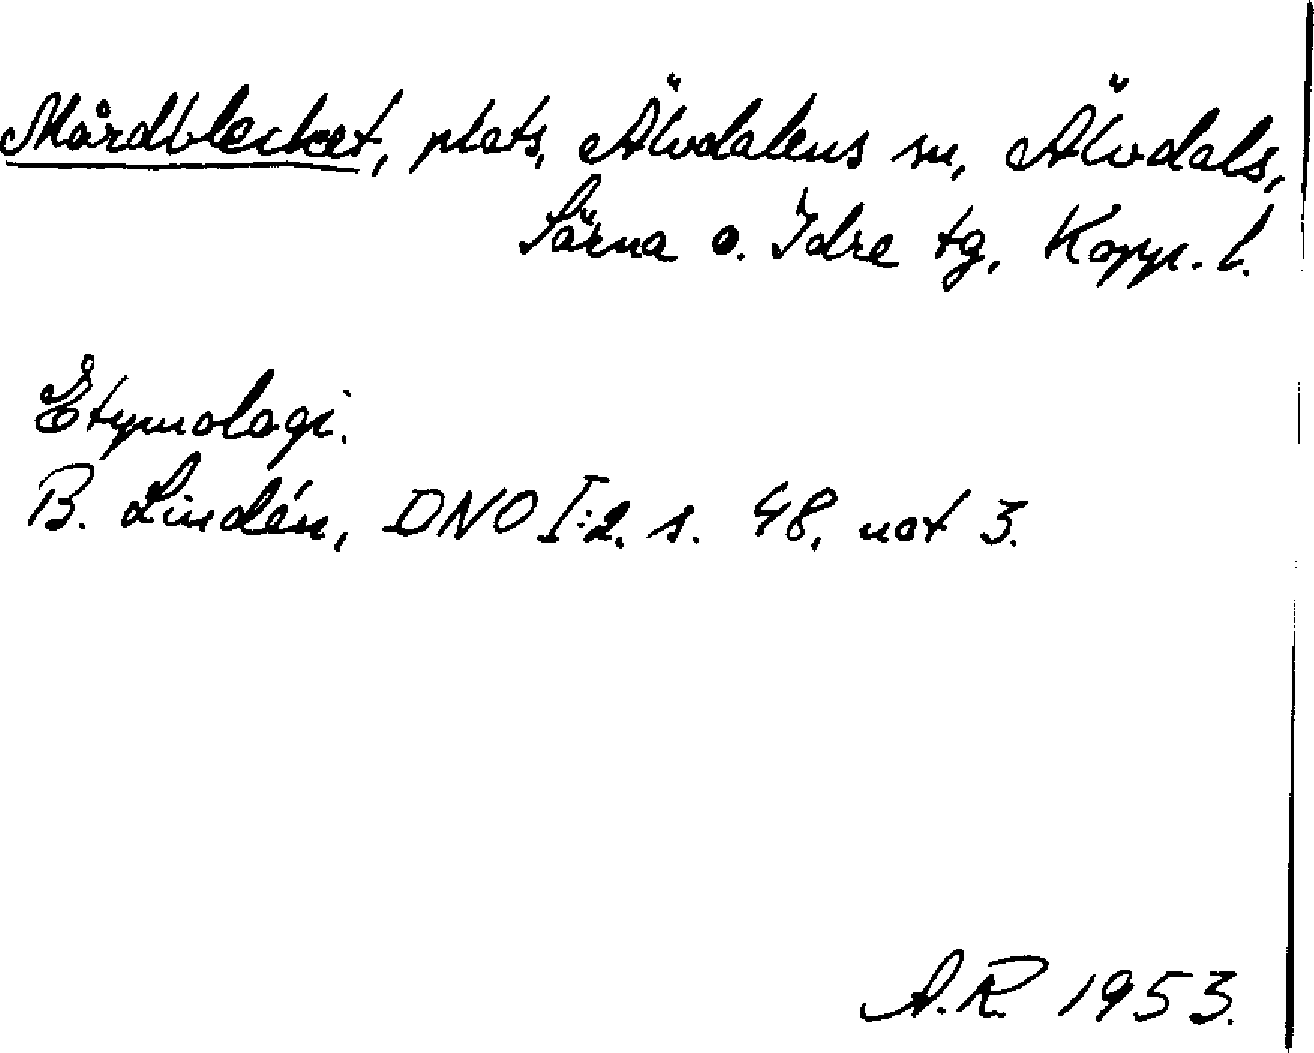 Mårdblecket, plats, Älvdalens sn, Älvdals,
Särna o. Idre tg, Kopp. l.
Etymologi.
B. Lindén, DNO I:2. s. 48, not 3.
A.R. 1953.